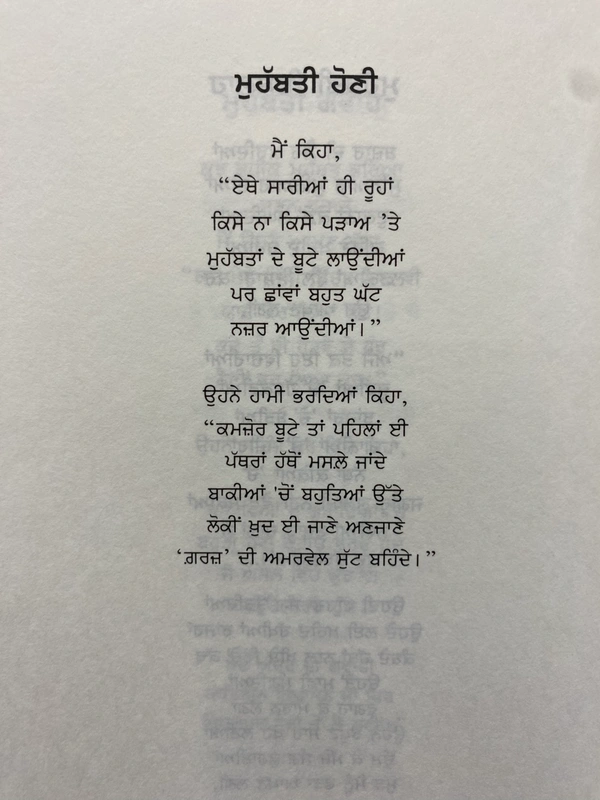 ਮੁਹੱਬਤੀ ਹੋਣੀ
ਮੈਂ ਕਿਹਾ,
“ਏਥੇ ਸਾਰੀਆਂ ਹੀ ਰੂਹਾਂ
ਕਿਸੇ ਨਾ ਕਿਸੇ ਪੜਾਅ ’ਤੇ
ਮੁਹੱਬਤਾਂ ਦੇ ਬੂਟੇ ਲਾਉਂਦੀਆਂ
ਪਰ ਛਾਂਵਾਂ ਬਹੁਤ ਘੱਟ
ਨਜ਼ਰ ਆਉਂਦੀਆਂ।”
ਉਹਨੇ ਹਾਮੀ ਭਰਦਿਆਂ ਕਿਹਾ,
“ਕਮਜ਼ੋਰ ਬੂਟੇ ਤਾਂ ਪਹਿਲਾਂ ਈ
ਪੱਥਰਾਂ ਹੱਥੋਂ ਮਸਲ਼ੇ ਜਾਂਦੇ
ਬਾਕੀਆਂ 'ਚੋਂ ਬਹੁਤਿਆਂ ਉੱਤੇ
ਲੋਕੀਂ ਖ਼ੁਦ ਈ ਜਾਣੇ ਅਣਜਾਣੇ
‘ਗ਼ਰਜ਼’ ਦੀ ਅਮਰਵੇਲ ਸੁੱਟ ਬਹਿੰਦੇ।”